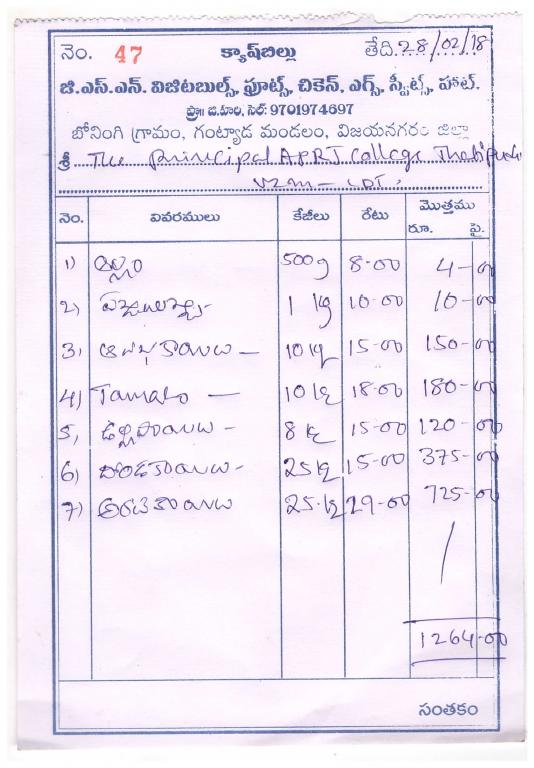 నెం. 47 క్యాష్‌బిల్లు తేది.28/02/18
జి.ఎస్.ఎన్. విజిటబుల్స్, ఫ్రూట్స్, చికెన్, ఎగ్స్, స్వీట్స్, హాట్.
ప్రొ॥ జి.హరి, సెల్: 9701974697
బోనింగి గ్రామం, గంట్యాడ మండలం, విజయనగరం జిల్లా
శ్రీ The Principal A.P.R.J College
VZM -
నెం. వివరములు కేజీలు రేటు మొత్తము
రూ. పై.
1) అల్లం 500g 8-00 4-00
2) 1 kg 10-00 10-00
3) 10 kg 15-00 150-00
4) Tamato - 10 kg 18-00 180-00
5) ఉల్లిపాయలు - 8 kg 15-00 120-00
6) దొండకాయలు - 25 kg 15-00 375-00
7) అరటికాయలు 25 kg 29-00 725-00
1264-00
సంతకం